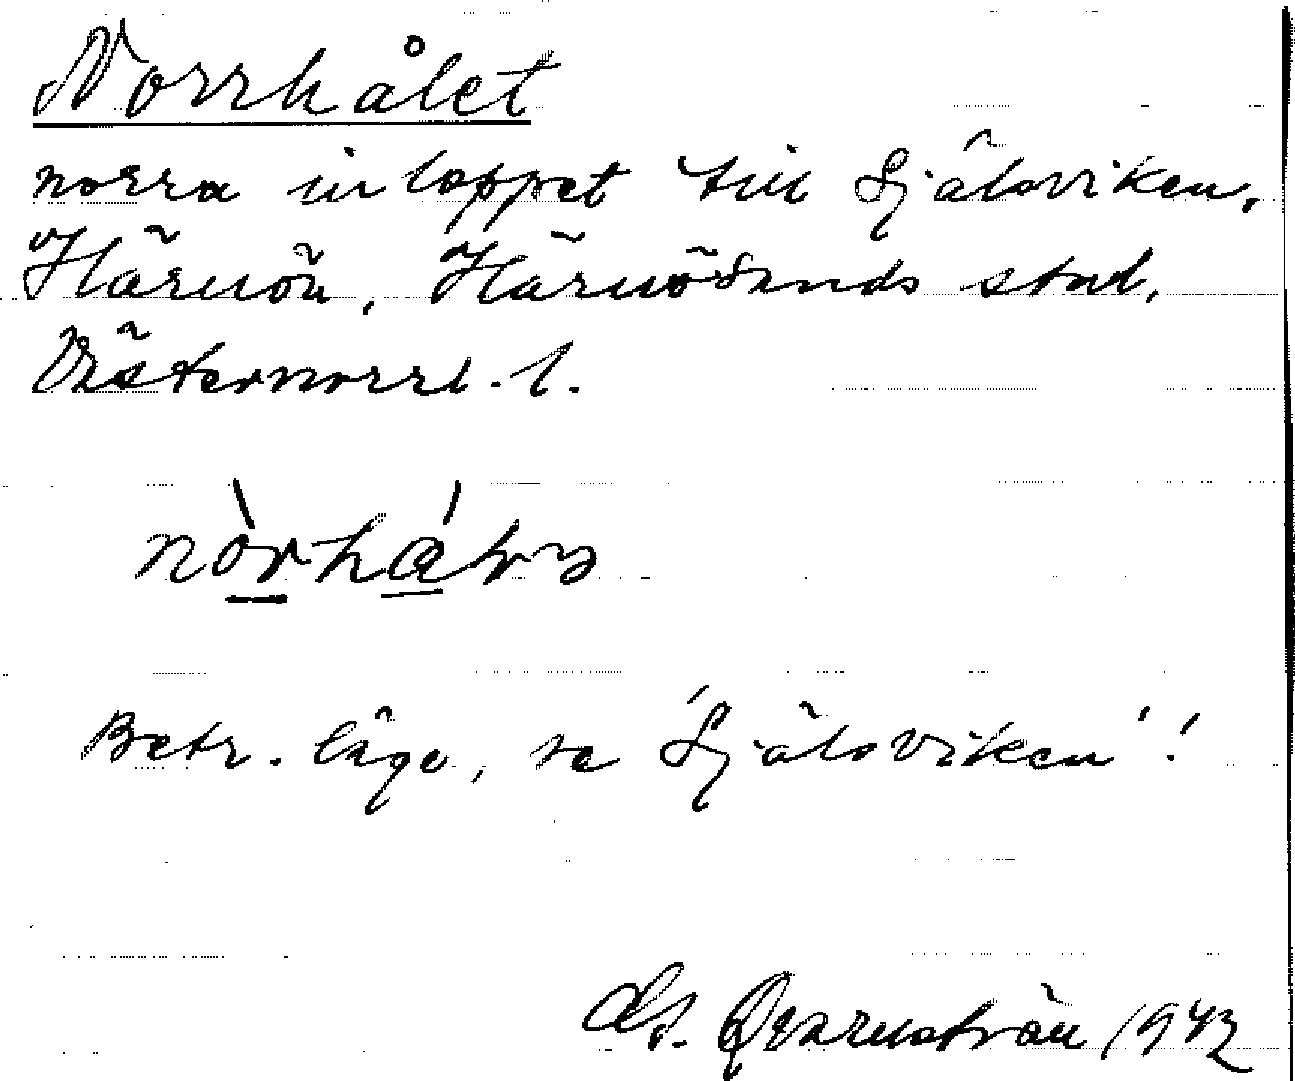 Norrhålet
norra inloppet till Själsviken,
Härnön, Härnösands stad,
Västernorrl. l.
Betr. läge, se 'Själsviken'!
Qvarnström 1942